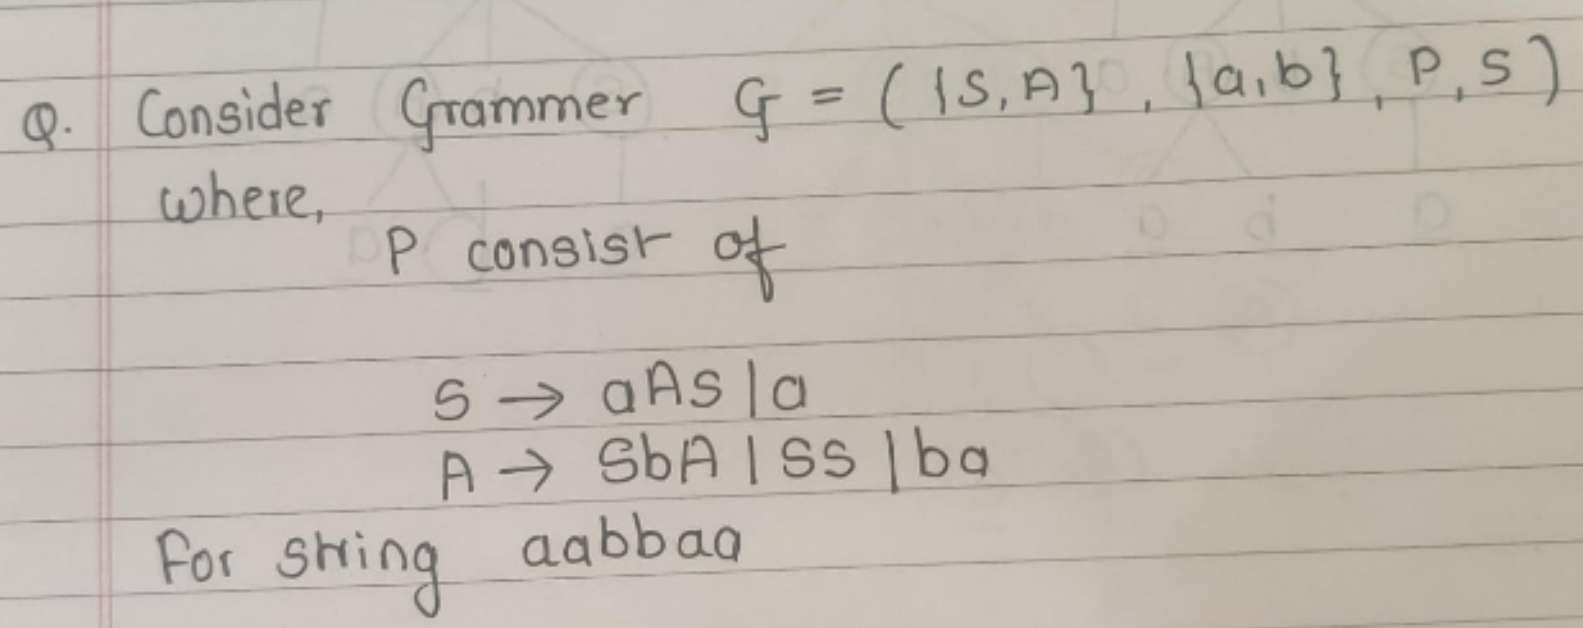 Q. Consider Grammer G = ({S, A}, {a, b}, P, S)
where,
P consist of
S → aAs | a
A → SbA | SS | ba
For string aabbaa